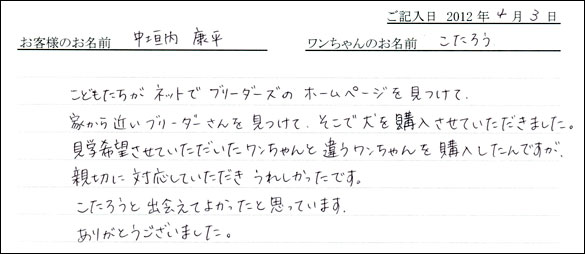 ご記入日 2012 年 4 月 3 日
お客様のお名前 中垣内 康平 ワンちゃんのお名前 こたろう
こどもたちが ネットで ブリーダーズの ホームページを見つけて、
家から近いブリーダーさんを見つけて、そこで犬を購入させていただきました。
見学希望させていただいたワンちゃんと違うワンちゃんを購入したんですが、
親切に対応していただき うれしかったです。
こたろうと出会えてよかったと思っています。
ありがとうございました。